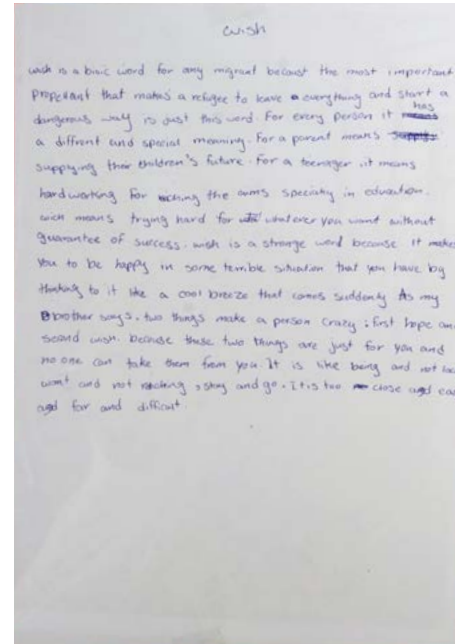 wish
wish is a basic word for any migrant because the most important
propellant that makes a refugee to leave everything and start a
dangerous way is just this word. For every person it has
a diffrent and special meaning. For a parent means
supplying their children's future. For a teenager, it means
hard working for reching the aims specialy in education.
wish means trying hard for whatever you want without
guarantee of success. wish is a strange word because it makes
you to be happy in some terrible situation that you have by
thinking to it like a cool breeze that comes suddenly As my
brother says. two things make a person crazy; first hope and
second wish. because these two things are just for you and
no one can take them from you. It is like being and not
want and not reaching, stay and go. It is too close and
and far and difficult.